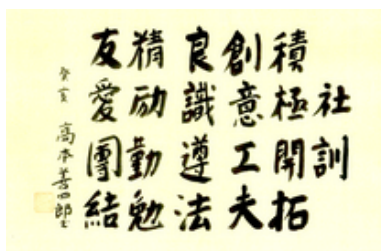 社訓
積極開拓
創意工夫
良識遵法
精励勤勉
友愛團結
癸亥 高本善四郎